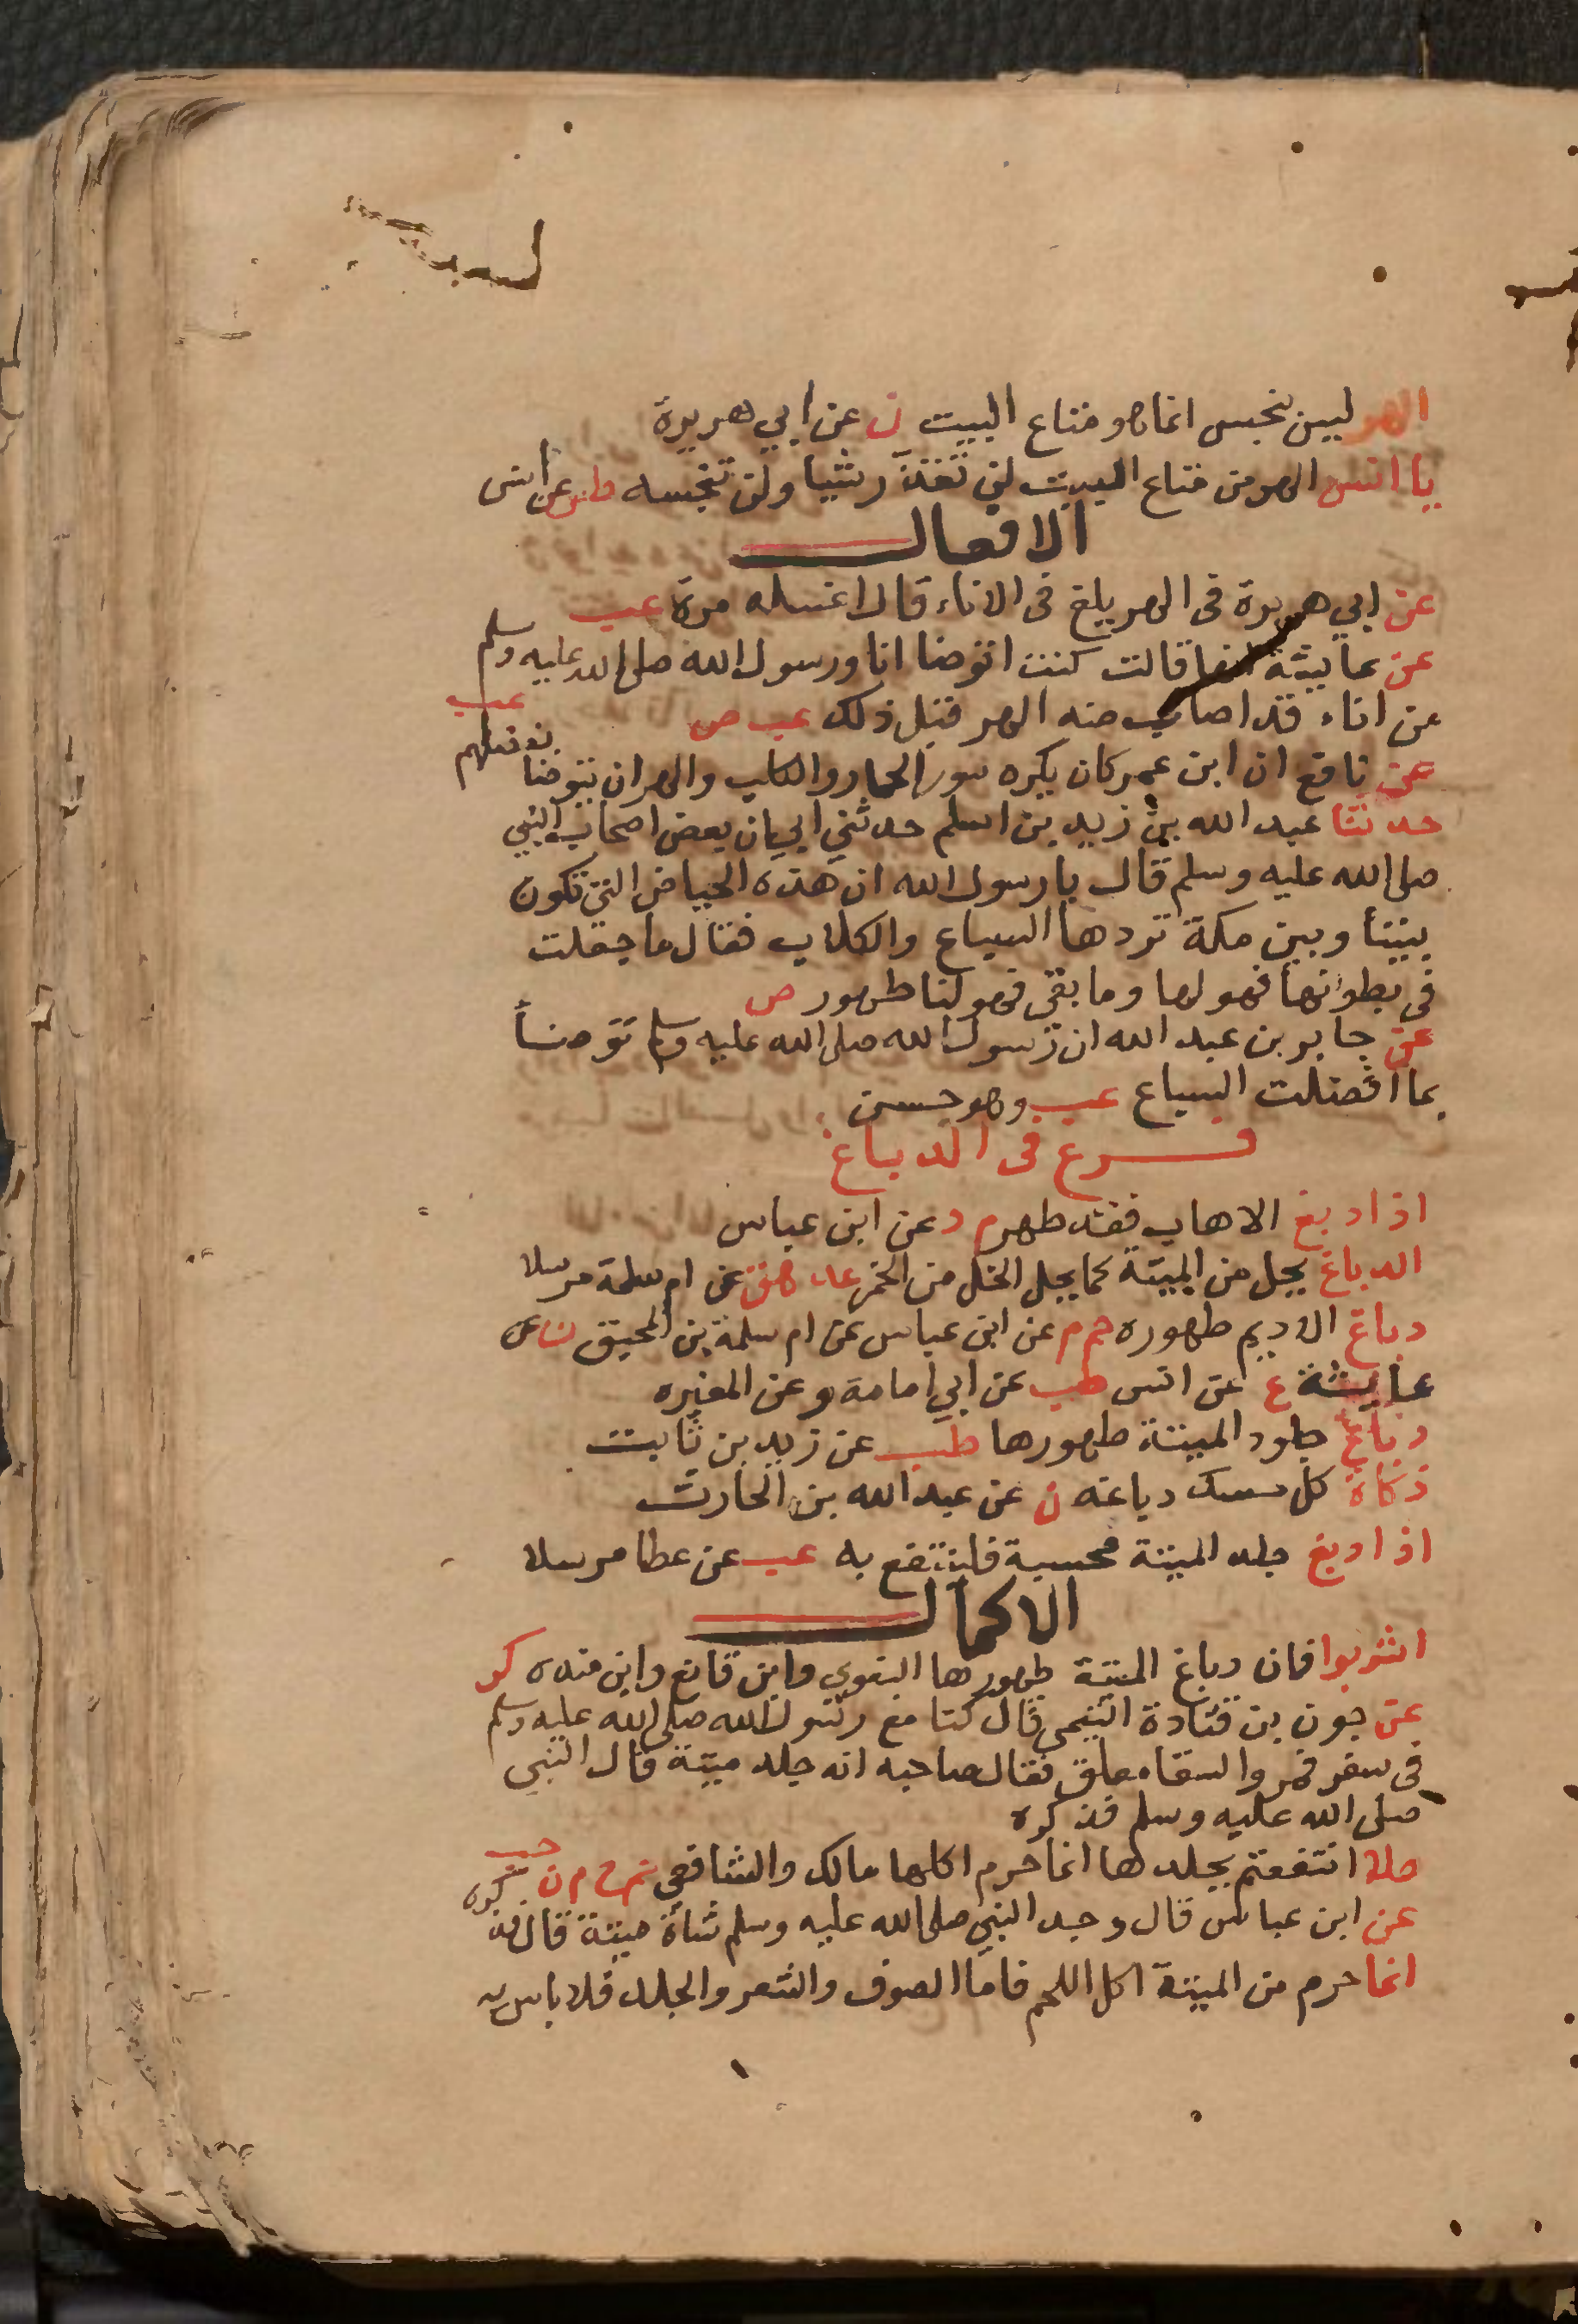 الهر ليس بنجس انما هو متاع البيت ن عن ابي هريرة
يا انس الهر من متاع البيت لن تقذر شيا ولن تنجسه طس عن انس
الافعال
عن ابي هريرة فى الهر يلغ فى الاناء قال اغسله مرة عب
عن عايشة قالت كنت اتوضا انا ورسول الله صلى الله عليه وسلم
من اناء قد اصاب منه الهر قبل ذلك عب ص
عن نافع ان ابن عمر كان يكره سور الحمار والكلب والهر ان يتوضا بفضلهم عب
حدثنا عبد الله بن زيد بن اسلم حدثني ابي ان بعض اصحاب النبي
صلى الله عليه وسلم قال يا رسول الله ان هذه الحياض التي تكون
بيننا وبين مكة تردها السباع والكلاب فقال ما جعلت
فى بطوانها فهو لها وما بقى فهو لنا طهور ص
عن جابر بن عبد الله ان رسول الله صلى الله عليه وسلم توضأ
بما افضلت السباع عب وهو حسن
فرع فى الدباغ
اذا دبغ الاهاب فقد طهر م د عن ابن عباس
الدباغ يحل من الميتة كما يحل الخل من الخمر عد هق عن ام سلمة مرسلا
دباغ الاديم طهوره حم م عن ابن عباس عن ام سلمة بن المحبق ن عن
عايشة ع عن انس طب عن ابي امامة وعن المغيره
دباغ جلود الميتة طهورها طب عن زيد بن ثابت
ذكاة كل مسك دباغه ن عن عبد الله بن الحارث
اذا دبغ جلد الميتة فحسبه فلينتفع به عب عن عطا مرسلا
الاكمال
اشربوا فان دباغ الميتة طهورها البغوى وابن قانع وابن منده كر
عن جون بن قتادة التيمى قال كنا مع رسول الله صلى الله عليه وسلم
فى سفر فمروا السقاء معلق فقال صاحبه انه جلد ميتة قال النبي
صلى الله عليه وسلم فذكره
هلا انتفعتم بجلدها انما حرم اكلها مالك والشافعي حم خ م ن حب
عن ابن عباس قال وجد النبي صلى الله عليه وسلم شاة ميتة قال فذكره
انما حرم من الميتة اكل اللحم فاما الصوف والشعر والجلد فلا باس به